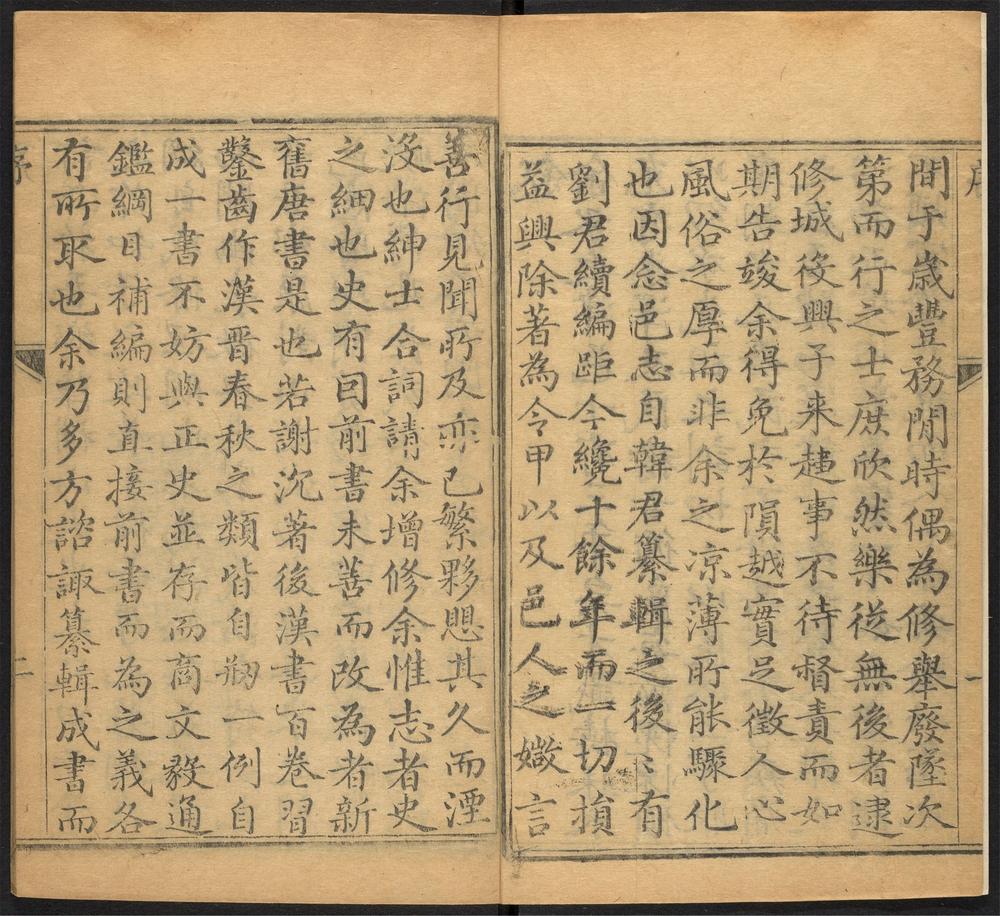 間于歲豐務閒時偶為修舉廢墜次
第而行之士庶欣然樂從無後者逮
修城役興子来趋事不待督責而如
期告竣余得免於隕越實足徵人心
風俗之厚而非余之凉薄所能驟化
也因念邑志自韓君纂輯之後〻有
劉君續編距今纔十餘年而一切損
益興除著為令甲以及邑人之媺言
一
善行見聞所及亦已繁夥愳其久而湮
沒也紳士合詞請余增修余惟志者史
之細也史有因前書未善而改為者新
舊唐書是也若謝沉著後漢書百卷習
鑿齒作漢晋春秋之類皆自剏一例自
成一書不妨與正史並存而商文毅通
鑑綱目補編則直接前書而為之義各
有所取也余乃多方諮諏纂輯成書而
序
二